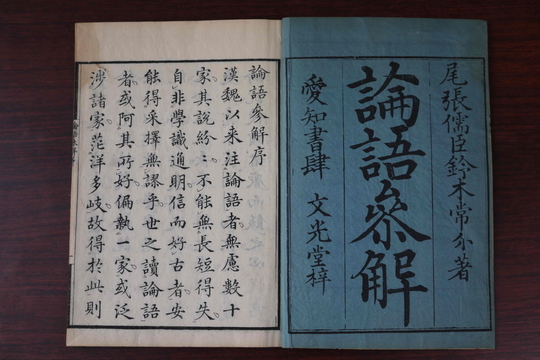 尾張儒臣鈴木常介著
論語參解
愛知書肆 文光堂梓
論語參解序
漢魏以來注論語者無慮數十
家其說紛〻不能無長短得失
自非學識通明信而好古者安
能得釆擇無謬乎世之讀論語
者或阿其所好偏執一家或泛
涉諸家茫洋多岐故得於此則